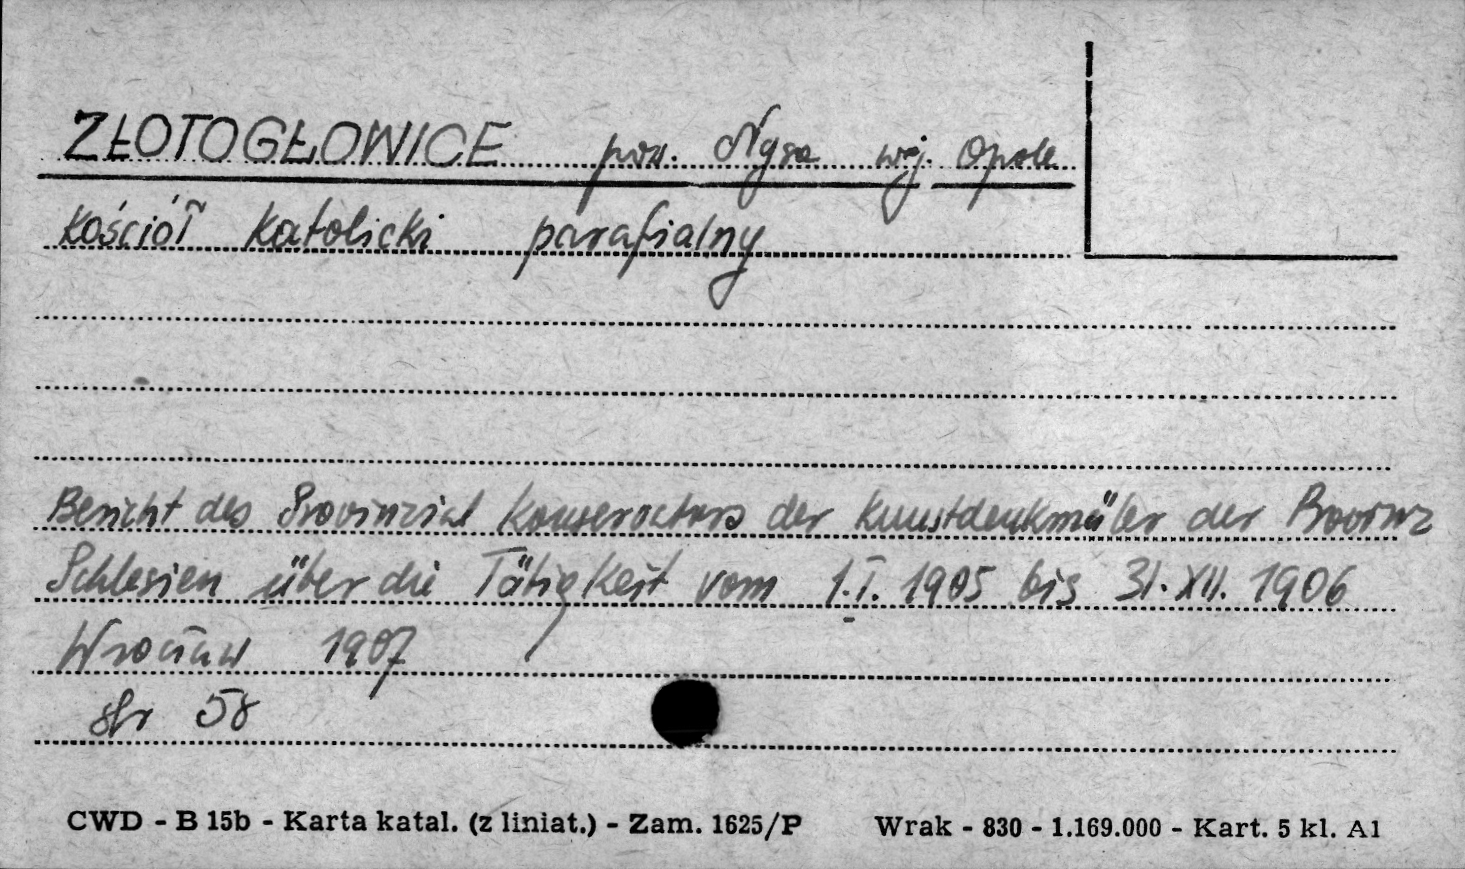 ZŁOTOGŁOWICE pow. Nysa woj. Opole
Kościół katolicki parafialny
Bericht des Provinzial Konservators der Kunstdenkmäler der Provinz
Schlesien über die Tätigkeit vom 1.I. 1905 bis 31.XII. 1906
Wrocław 1907
str 58
CWD - B 15b - Karta katal. (z liniat.) - Zam. 1625/P Wrak - 830 - 1.169.000 - Kart. 5 kl. A1